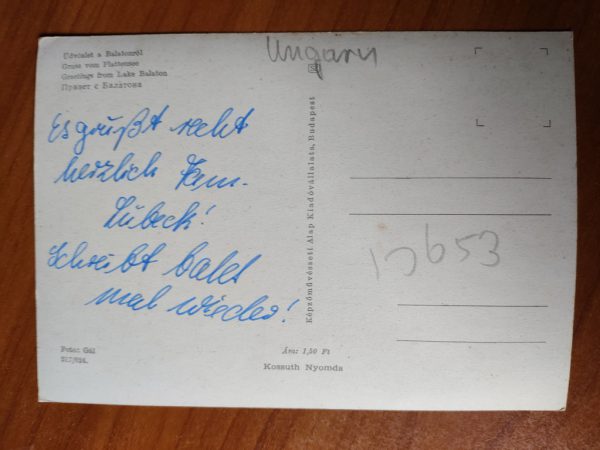 Üdvözlet a Balatonról
Gruss vom Plattensee
Greetings from Lake Balaton
Привет с Балатона
Ungarn
Es grüßt recht
herzlich Fam.
Lübeck!
Schreibt bald
mal wieder!
Képzőművészeti Alap Kiadóvállalata, Budapest
Foto: Gál
Ára: 1,50 Ft
Kossuth Nyomda